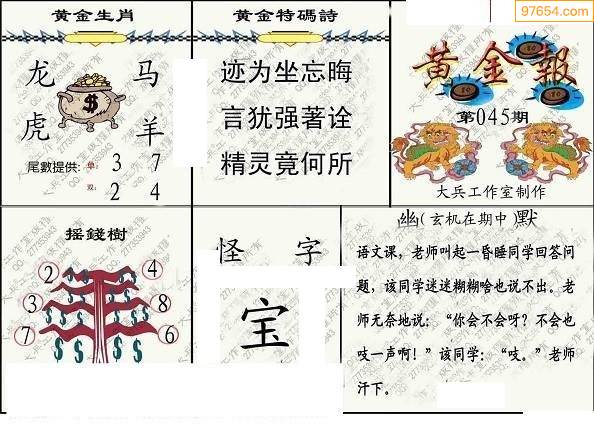 97654.com
黄金生肖
龙 马
虎 羊
尾數提供: 单: 3 7
双: 2 4
黄金特碼詩
迹为坐忘晦
言犹强著诠
精灵竟何所
黄金報
第045期
大兵工作室制作
摇錢樹
2 4
3 8
7 6
怪 字
宝
幽(玄机在期中)默
语文课，老师叫起一昏睡同学回答问
题，该同学迷迷糊糊啥也说不出。老
师无奈地说：“你会不会呀？不会也
吱一声啊！”该同学：“吱。”老师
汗下。